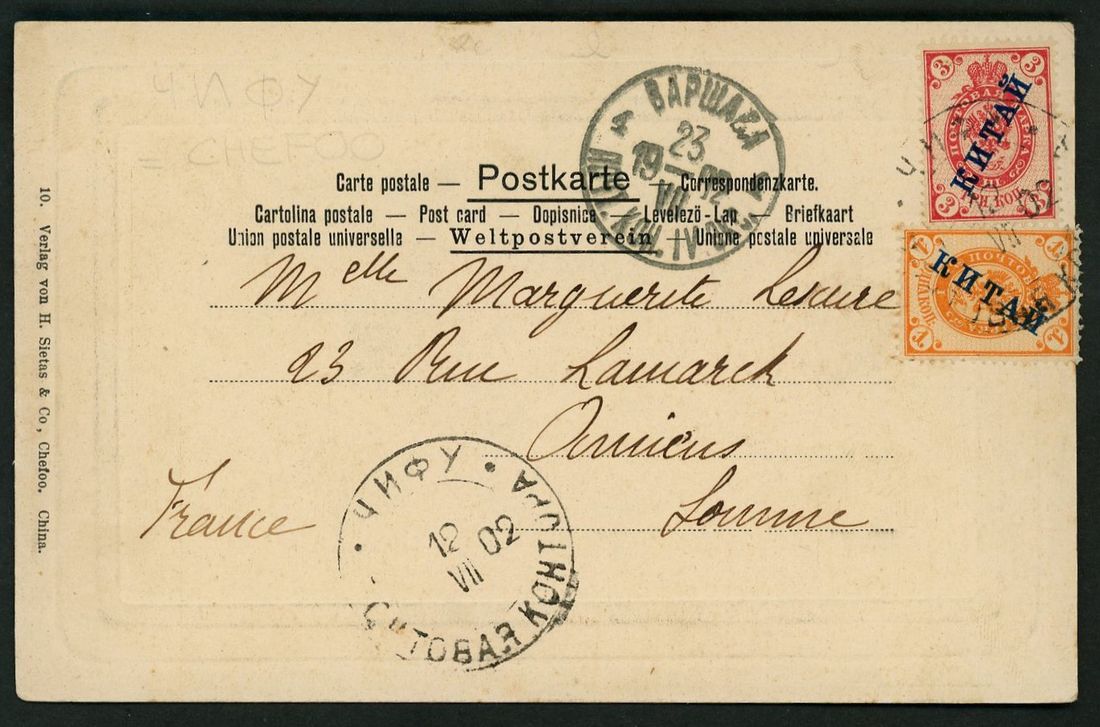 ЧИФУ
= CHEFOO
3 3
ПОЧТОВАЯ МАРКА
КИТАЙ
3 КОП.
1
КИТАЙ
1
ВАРШАВА
23
19 — 02
VII
Carte postale — Postkarte — Correspondenzkarte.
Cartolina postale — Post card — Dopisnice — Levelezö-Lap — Briefkaart
Union postale universelle — Weltpostverein — Unione postale universale
Melle Marguerite Lesure
23 Rue Lamarck
Amiens
France Somme
ЧИФУ
12
VII 02
ПОЧТОВАЯ КОНТОРА
10. Verlag von H. Sietas & Co, Chefoo. China.